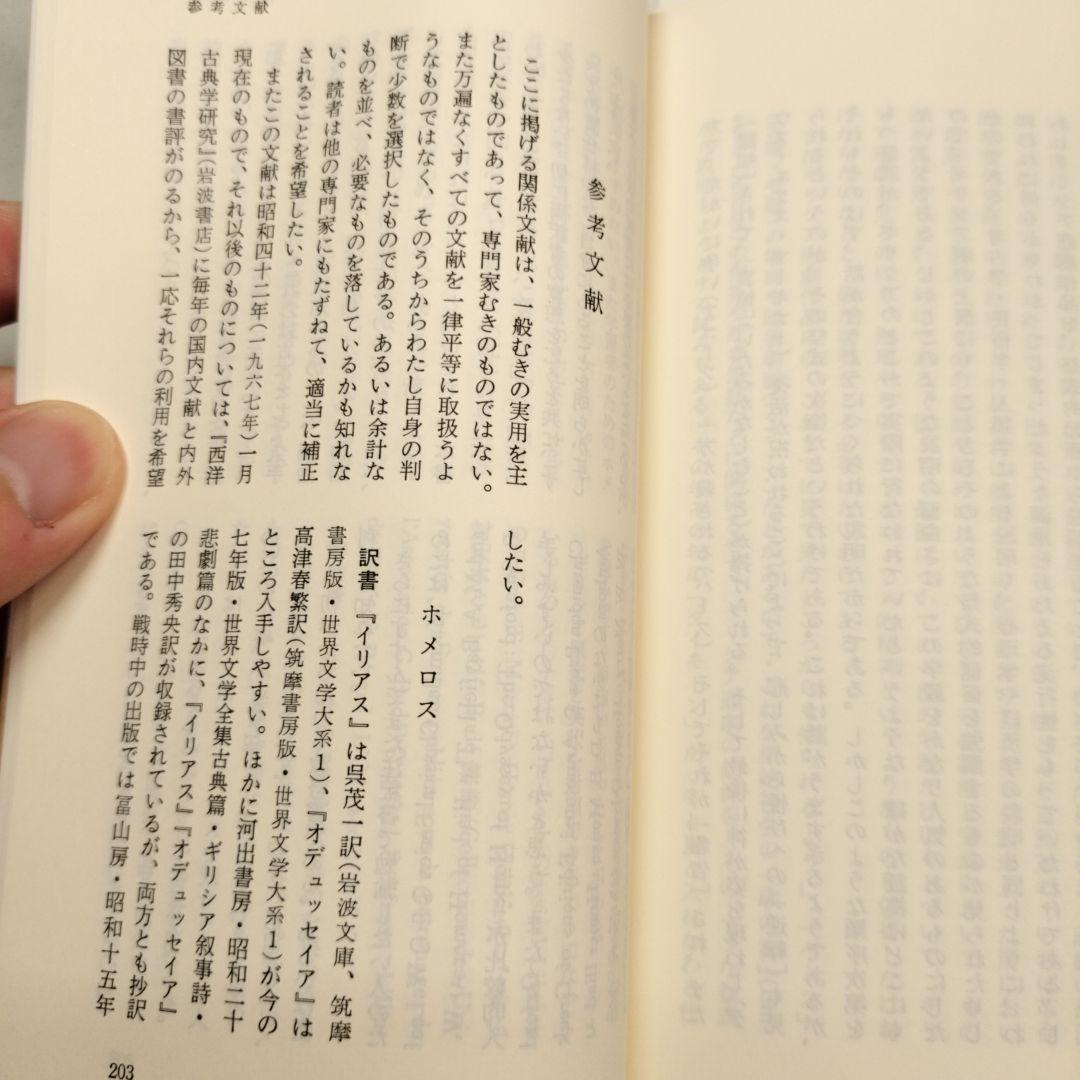 参考文献
参考文献
ここに掲げる関係文献は、一般むきの実用を主
としたものであって、専門家むきのものではない。
また万遍なくすべての文献を一律平等に取扱うよ
うなものではなく、そのうちからわたし自身の判
断で少数を選択したものである。あるいは余計な
ものを並べ、必要なものを落しているかも知れな
い。読者は他の専門家にもたずねて、適当に補正
されることを希望したい。
またこの文献は昭和四十二年(一九六七年)一月
現在のもので、それ以後のものについては、『西洋
古典学研究』(岩波書店)に毎年の国内文献と内外
図書の書評がのるから、一応それらの利用を希望
したい。
ホメロス
訳書 『イリアス』は呉茂一訳(岩波文庫、筑摩
書房版・世界文学大系1)、『オデュッセイア』は
高津春繁訳(筑摩書房版・世界文学大系1)が今の
ところ入手しやすい。ほかに河出書房・昭和二十
七年版・世界文学全集古典篇・ギリシア叙事詩・
悲劇篇のなかに、『イリアス』『オデュッセイア』
の田中秀央訳が収録されているが、両方とも抄訳
である。戦時中の出版では冨山房・昭和十五年
203